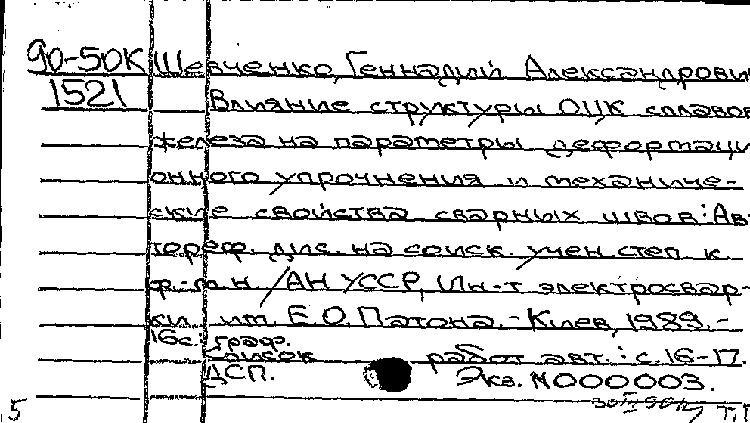 90-50К Шевченко, Геннадий Александрови
1521 Влияние структуры ОЦК сплавов
железа на параметры деформаци
онного упрочнения и механиче-
ские свойства сварных швов: Ав
тореф. дис. на соиск. учен. степ. к.
ф.-м. н. / АН УССР, Ин-т электросвар-
ки им. Е.О. Патона. - Киев, 1989. -
16с.: граф.
Список работ авт.: с. 16-17.
ДСП. Экз. N000003.
5